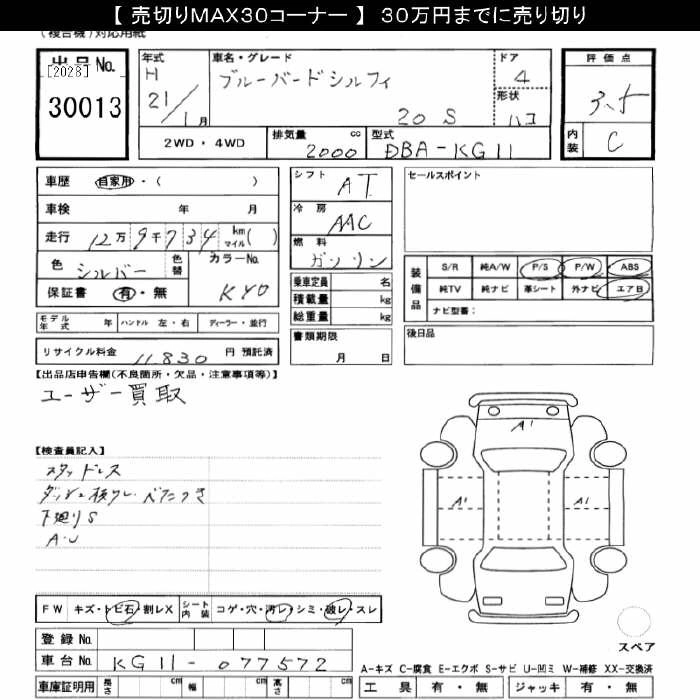 【 売切りMAX30コーナー 】 30万円までに売り切り
(複合機)対応用紙
出品No.
[2028]
30013
年式
H
21/1月
車名・グレード
ブルーバードシルフィ
20 S
ドア
4
形状
ハコ
評価点
3.5
内装
C
2WD・4WD
排気量 cc
2000
型式
DBA-KG11
車歴 自家用・( )
車検 年 月
走行 12万9千734 km マイル( )
色 シルバー 色替
カラーNo.
KY0
保証書 有・無
モデル年式 年 ハンドル 左・右 ディーラー・並行
リサイクル料金 11830 円 預託済
シフト
AT
冷房
AAC
燃料
ガソリン
乗車定員 名
積載量 kg
総重量 kg
書類期限
月 日
セールスポイント
装備品
S/R 純A/W P/S P/W ABS
純TV 純ナビ 革シート 外ナビ エアB
ナビ型番:
後日品
【出品店申告欄(不良箇所・欠品・注意事項等)】
ユーザー買取
【検査員記入】
スタッドレス
ダッシュ べたつき
下廻りS
A・U
A1
A1
A1
スペア
FW キズ・トビ石・割レX
シート内装 コゲ・穴・汚レ・シミ・破レ・スレ
登録No.
車台No. KG11-077572
車庫証明用 長さ cm 幅 cm 高さ cm
A-キズ C-腐食 E-エクボ S-サビ U-凹ミ W-補修 XX-交換済
工具 有・無 ジャッキ 有・無